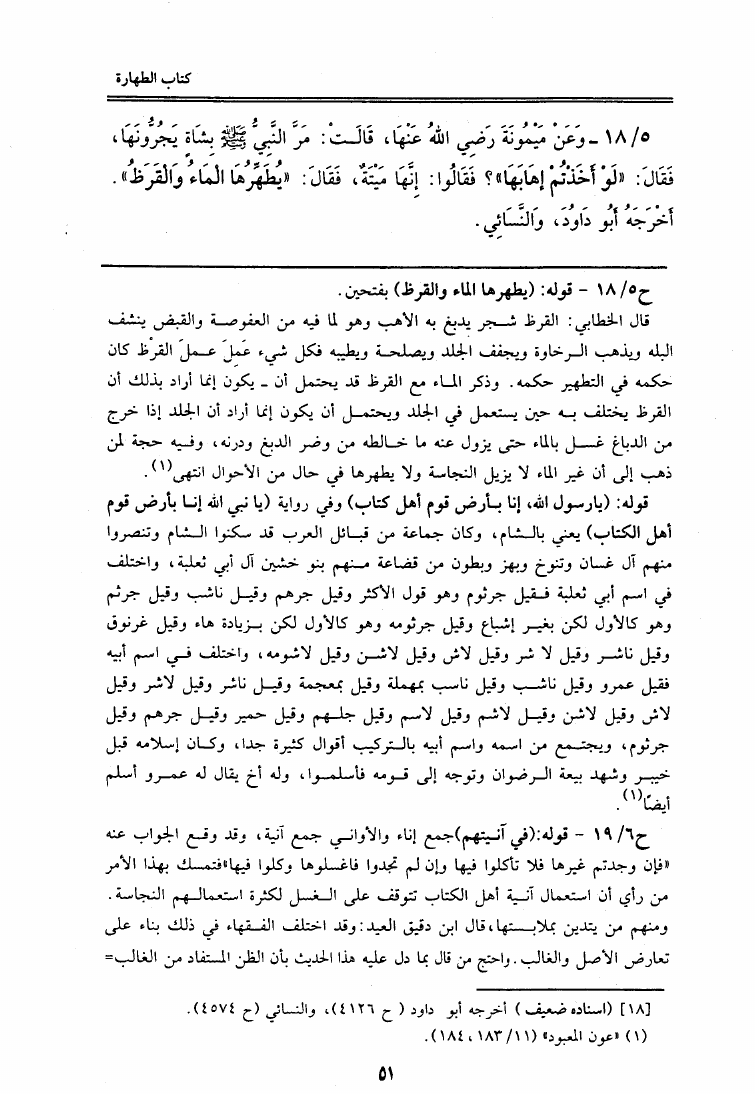 كتاب الطهارة
١٨/٥ ـ وَعَنْ مَيْمُونَةَ رَضِي اللهُ عَنْهَا، قَالَتْ: مَرَّ النَّبِيُّ ﷺ بِشَاةٍ يَجُرُّونَهَا،
فَقَالَ: «لَوْ أَخَذْتُمْ إِهَابَهَا»؟ فَقَالُوا: إِنَّهَا مَيْتَةٌ، فَقَالَ: «يُطَهِّرُهَا الْمَاءُ وَالْقَرَظُ».
أَخْرَجَهُ أَبُو دَاوُدَ، وَالنَّسَائِي.
ح١٨/٥ - قوله: (يطهرها الماء والقرظ) بفتحين.
قال الخطابي: القرظ شجر يدبغ به الأهب وهو لما فيه من العفوصة والقبض ينشف
البله ويذهب الرخاوة ويجفف الجلد ويصلحة ويطيبه فكل شيء عَمِلَ عمل القرْظ كان
حكمه في التطهير حكمه. وذكر الماء مع القرظ قد يحتمل أن ـ يكون إنما أراد بذلك أن
القرظ يختلف به حين يستعمل في الجلد ويحتمل أن يكون إنما أراد أن الجلد إذا خرج
من الدباغ غسل بالماء حتى يزول عنه ما خالطه من وضر الدبغ ودرنه، وفيه حجة لمن
ذهب إلى أن غير الماء لا يزيل النجاسة ولا يطهرها في حال من الأحوال انتهى(١).
قوله: (يارسول الله، إنا بأرض قوم أهل كتاب) وفي رواية (يا نبي الله إنا بأرض قوم
أهل الكتاب) يعني بالشام، وكان جماعة من قبائل العرب قد سكنوا الشام وتنصروا
منهم آل غسان وتنوخ وبهز وبطون من قضاعة منهم بنو خشين آل أبي ثعلبة، واختلف
في اسم أبي ثعلبة فقيل جرثوم وهو قول الأكثر وقيل جرهم وقيل ناشب وقيل جرثم
وهو كالأول لكن بغير إشباع وقيل جرثومه وهو كالأول لكن بزيادة هاء وقيل غرنوق
وقيل ناشر وقيل لا شر وقيل لاش وقيل لاشن وقيل لاشومه، واختلف في اسم أبيه
فقيل عمرو وقيل ناشب وقيل ناسب بمهملة وقيل بمعجمة وقيل ناشر وقيل لاشر وقيل
لاش وقيل لاشن وقيل لاشم وقيل لاسم وقيل جلهم وقيل حمير وقيل جرهم وقيل
جرثوم، ويجتمع من اسمه واسم أبيه بالتركيب أقوال كثيرة جدا، وكان إسلامه قبل
خيبر وشهد بيعة الرضوان وتوجه إلى قومه فأسلموا، وله أخ يقال له عمرو أسلم
أيضًا(١).
ح١٩/٦ - قوله:(في آنيتهم)جمع إناء والأواني جمع آنية، وقد وقع الجواب عنه
«فإن وجدتم غيرها فلا تأكلوا فيها وإن لم تجدوا فاغسلوها وكلوا فيها»فتمسك بهذا الأمر
من رأي أن استعمال آنية أهل الكتاب تتوقف على الغسل لكثرة استعمالهم النجاسة.
ومنهم من يتدين بملابستها،قال ابن دقيق العيد:وقد اختلف الفقهاء في ذلك بناء على
تعارض الأصل والغالب.واحتج من قال بما دل عليه هذا الحديث بأن الظن المستفاد من الغالب=
[١٨] (اسناده ضعيف) أخرجه أبو داود ( ح ٤١٢٦)، والنسائي (ح ٤٥٧٤).
(١) «عون المعبود» (١٨٣/١١، ١٨٤).
٥١